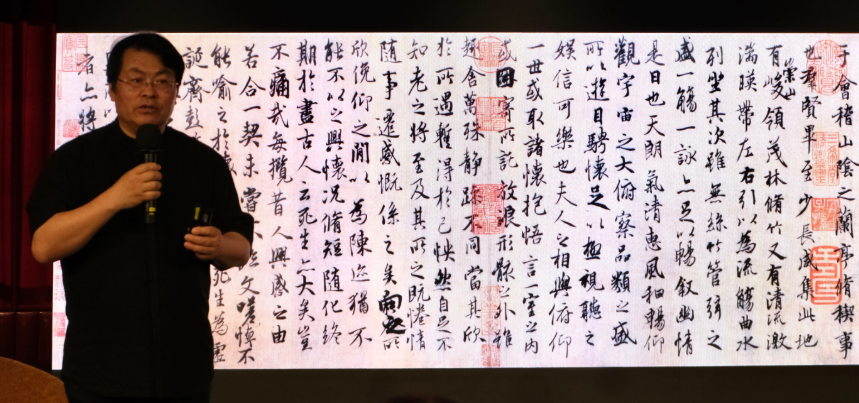 于會稽山陰之蘭亭脩稧事
也羣賢畢至少長咸集此地
有崇山峻領茂林脩竹又有清流激
湍暎帶左右引以為流觴曲水
列坐其次雖無絲竹管弦之
盛一觴一詠亦足以暢敘幽情
是日也天朗氣清惠風和暢仰
觀宇宙之大俯察品類之盛
所以遊目騁懷足以極視聽之
娛信可樂也夫人之相與俯仰
一世或取諸懷抱悟言一室之內
或因寄所託放浪形骸之外雖
趣舍萬殊靜躁不同當其欣
於所遇蹔得於己怏然自足不
知老之將至及其所之既惓情
隨事遷感慨係之矣向之所
欣俛仰之閒以為陳迹猶不
能不以之興懷況脩短隨化終
期於盡古人云死生亦大矣豈
不痛哉每攬昔人興感之由
若合一契未嘗不臨文嗟悼不
能喻之於懷 死生為虛
誕齊彭
者亦將